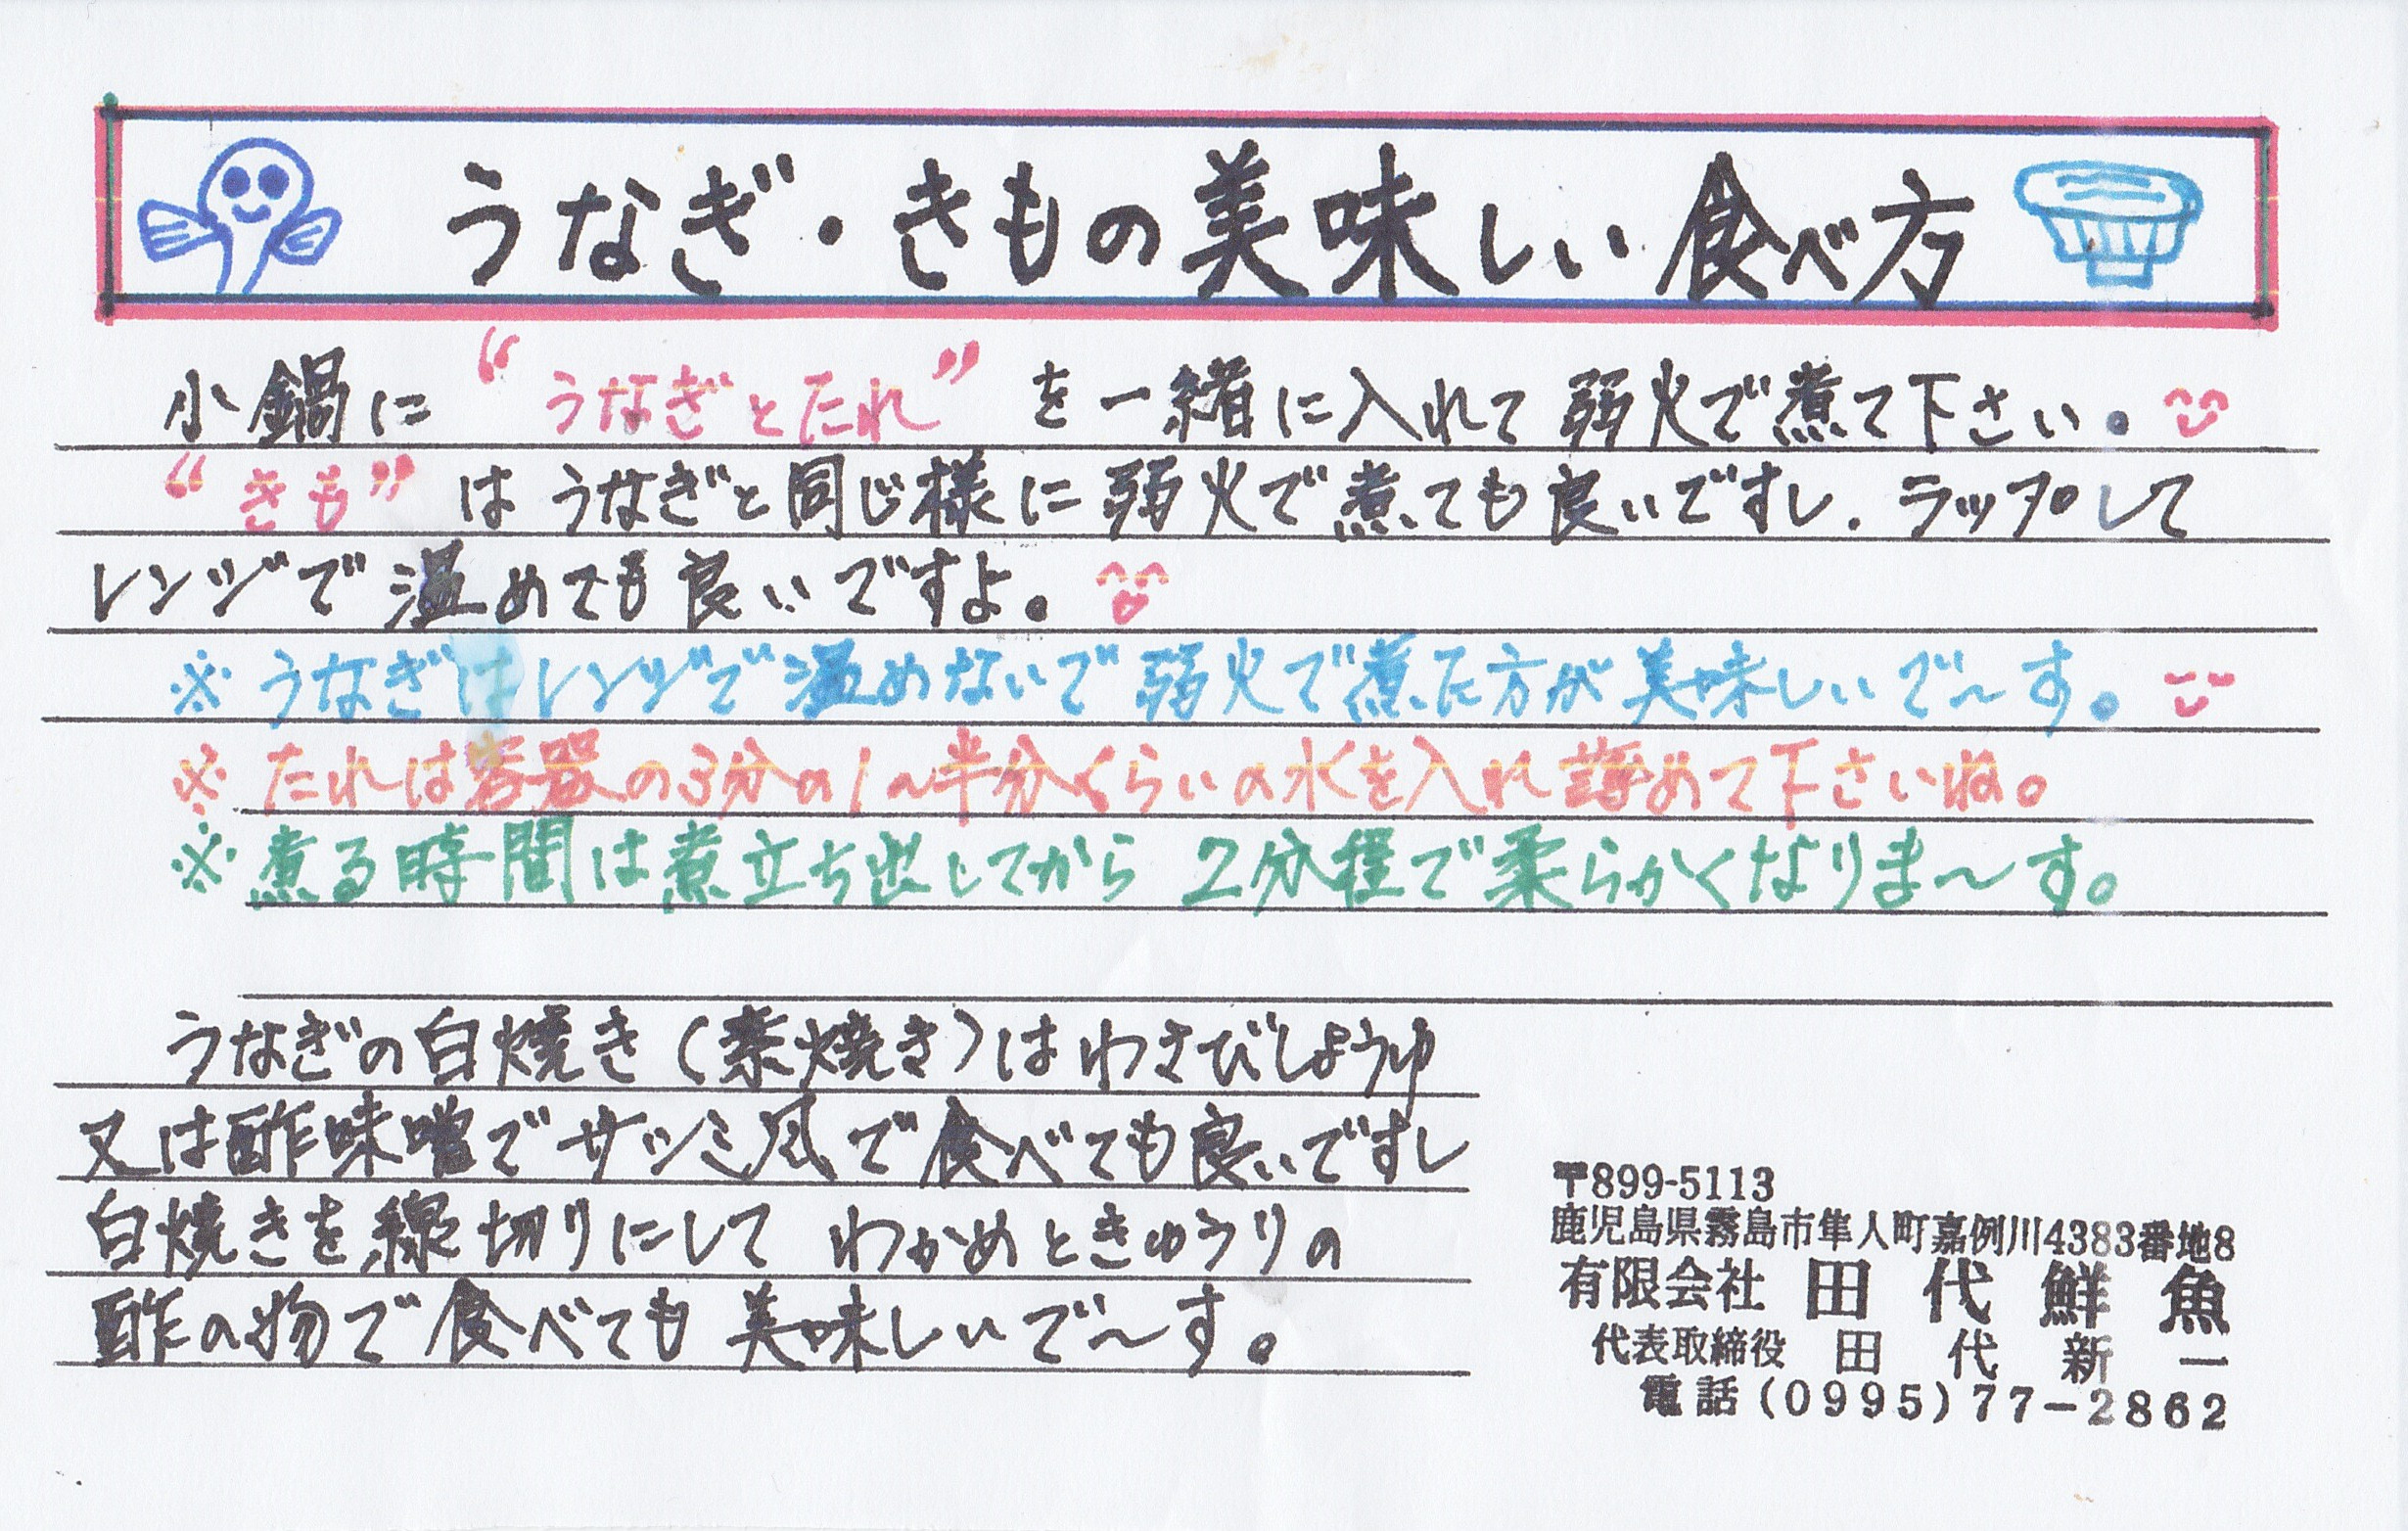 うなぎ・きもの美味しい食べ方
小鍋に“うなぎとたれ”を一緒に入れて弱火で煮て下さい。
“きも”はうなぎと同じ様に弱火で煮ても良いですし.ラップして
レンジで温めても良いですよ。
※うなぎはレンジで温めないで弱火で煮た方が美味しいで〜す。
※たれは容器の3分の1〜半分くらいの水を入れ薄めて下さいね。
※煮る時間は煮立ち出してから2分程で柔らかくなりま〜す。
うなぎの白焼き(素焼き)はわさびしょうゆ
又は酢味噌でサシミ風で食べても良いですし
白焼きを線切りにしてわかめときゅうりの
酢の物で食べても美味しいで〜す。
〒899-5113
鹿児島県霧島市隼人町嘉例川4383番地8
有限会社 田代鮮魚
代表取締役 田代新一
電話(0995)77-2862